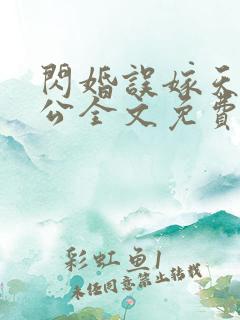 閃婚誤嫁天
公全文免費
彩虹鱼1
未经同意禁止转载